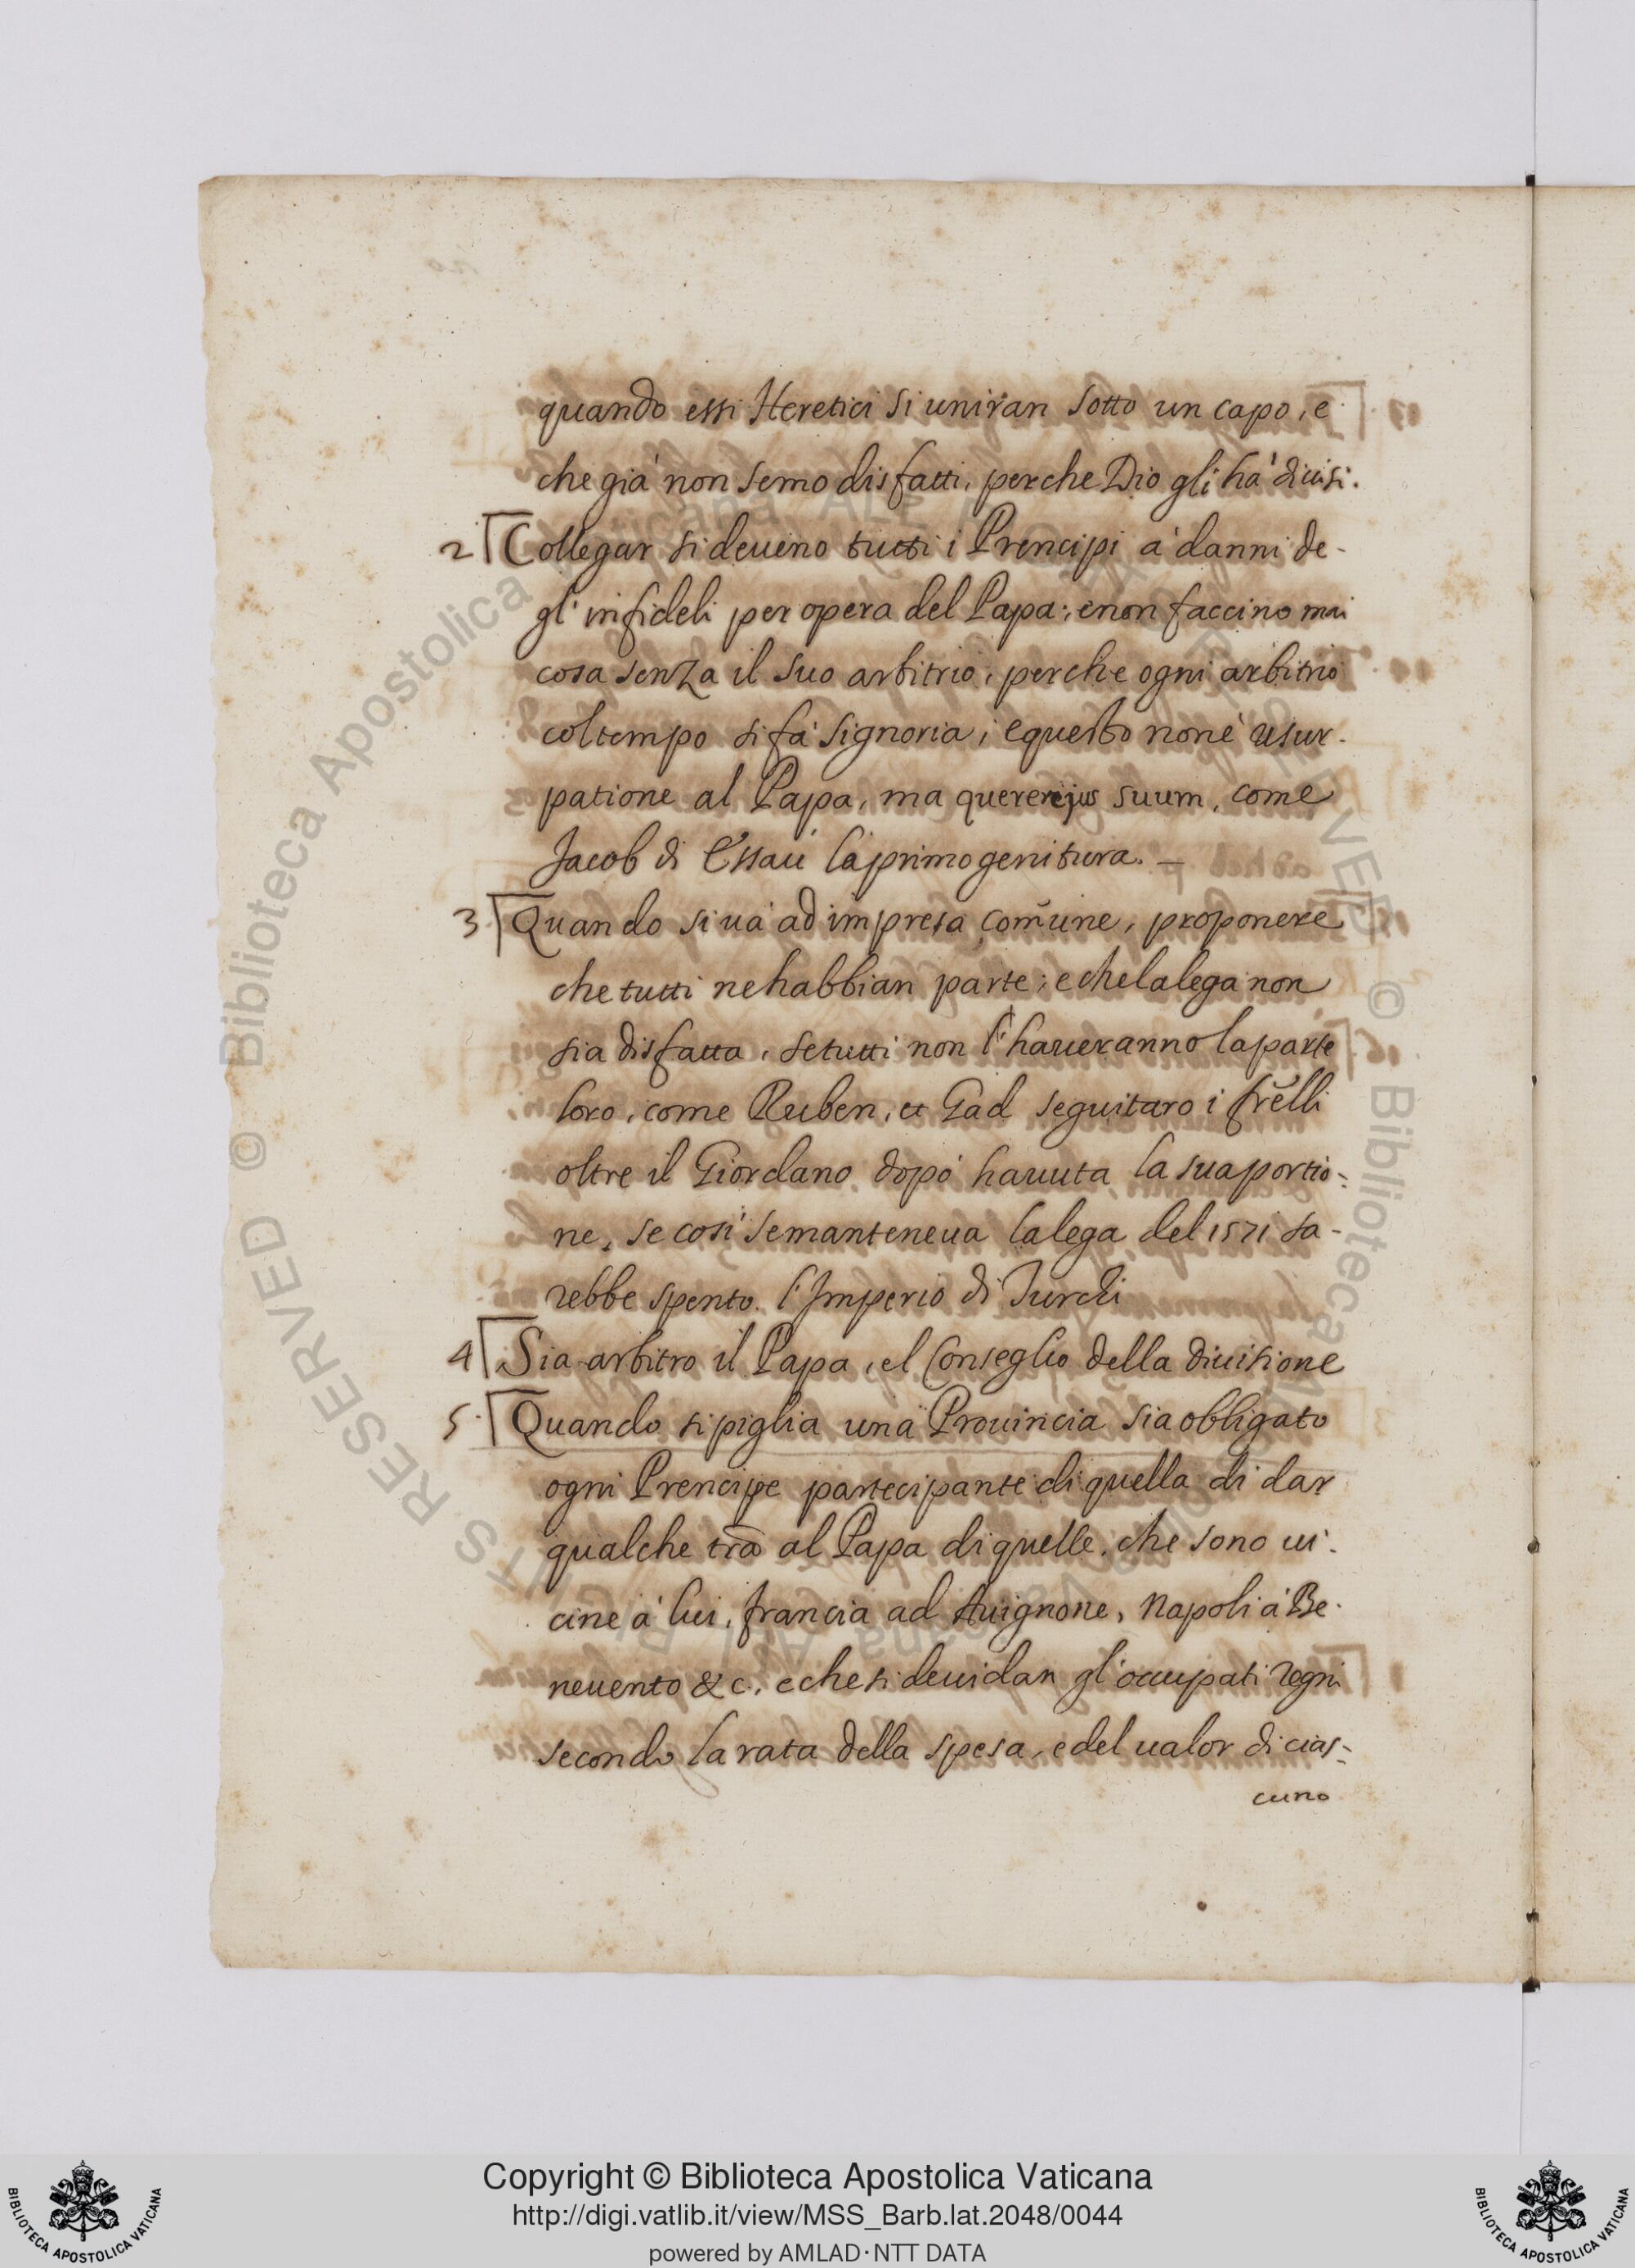 quando essi Heretici si uniran sotto un capo, e
che già non semo disfatti, perche Dio gli hà diuisi.
2 Collegar si deueno tutti i Prencipi à danni de-
gl'infideli per opera del Papa; e non faccino mai
cosa senza il suo arbitrio, perche ogni arbitrio
col tempo si fà signoria; e questo non è usur-
patione al Papa, ma querere jus suum, come
Jacob di Essaù la primogenitura. —
3. Quando si uà ad impresa com̃une, proponere
che tutti ne habbian parte; e che la lega non
sia disfatta, se tutti non l'haueranno la parte
loro, come Ruben, et Gad seguitaro i fr̃elli
oltre il Giordano dopò hauuta la sua portio-
ne, se così se manteneua la lega del 1571 sa-
rebbe spento l'Imperio di Turchi
4 Sia arbitro il Papa, el Conseglio della diuisione
5. Quando si piglia una Prouincia sia obligato
ogni Prencipe partecipante di quella di dar
qualche tr̃a al Papa di quelle, che sono ui-
cine à lui, francia ad Auignone, Napoli à Be-
neuento &c., e che si deuidan gl'occupati regni
secondo la rata della spesa, e del ualor di cias-
cuno
Copyright © Biblioteca Apostolica Vaticana
http://digi.vatlib.it/view/MSS_Barb.lat.2048/0044
powered by AMLAD·NTT DATA
BIBLIOTECA APOSTOLICA VATICANA
BIBLIOTECA APOSTOLICA VATICANA